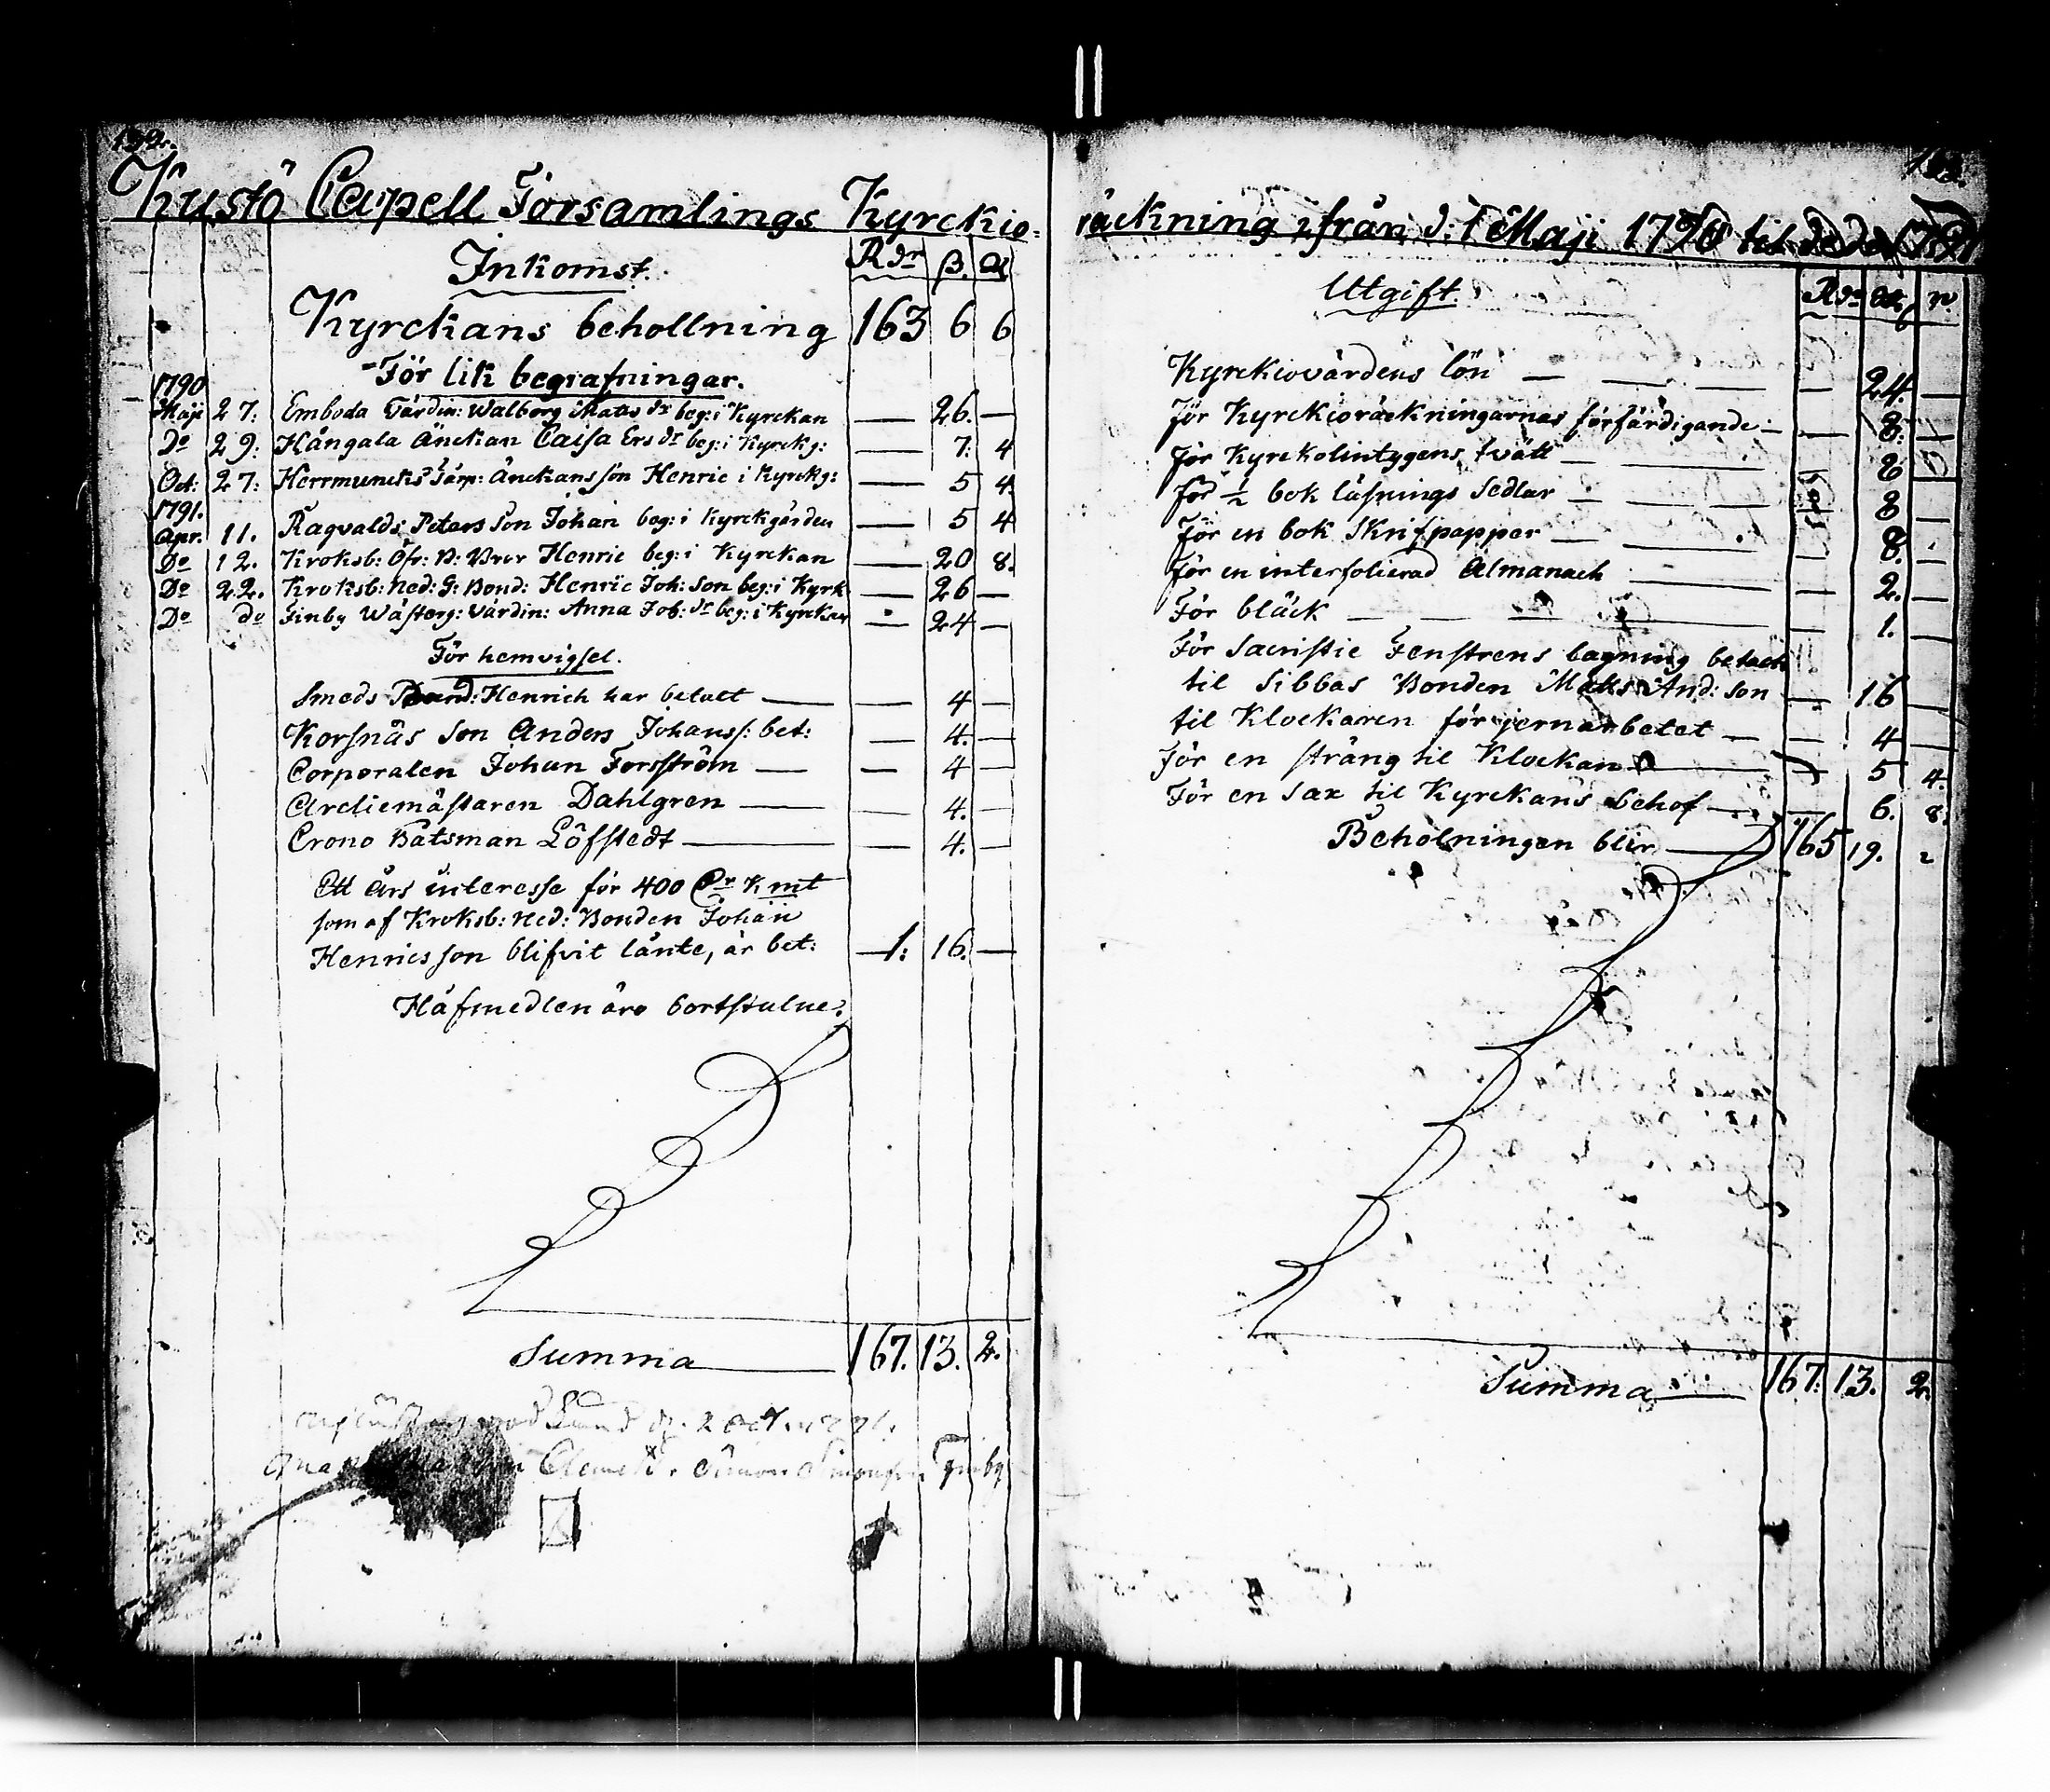 192.
Kustö Capell Församlings Kyrckio=
Inkomst. Rdr ß. d
Kyrckans behollning 163 6 6
För lik begrafningar.
1790
Maji 27: Emboda Värdin: Walborg Matts dr beg: i Kyrckan — 26. —
Do 29: Hångala Änckan Caisa Ers dr beg: i Kyrckg: — 7: 4
Oct: 27: Herrmuncks Torp: Änckans son Henric i Kyrckg: — 5 4.
1791.
Apr. 11. Ragvalds Peters Son Johan beg: i Kyrckgården — 5 4
Do 12. Kroksb: Öfr: B: Bror Henric beg: i Kyrckan — 20 8.
Do 22. Kroksb: Ned: G: Bond: Henric Joh: Son beg: i Kyrk — 26 —
Do do Finby Wästerg: Värdin: Anna Joh: dr beg: i Kyrckan — 24 —
För hemvigsel.
Smeds Henrich har betalt — — 4 —
Korsnäs Son Anders Johanss: bet: — 4. —
Corporalen Johan Forsström — — 4 —
Arcliemästaren Dahlgren — — 4. —
Crono Båtsman Löfstedt — — 4. —
Ett Års interesse för 400 Dr Kmt
som af Kroksb: Ned: Bonden Johan
Henricsson blifvit lånte, är bet: 1: 16. —
Håfmedlen äro bortstulne.
Summa — 167. 13. 2.
Clemet Simon Simonsson Finby
räckning ifrån d: 1 Maji 1790 til
Utgift. Rdr
Kyrckiovärdens lön — — — — 24. —
för Kyrckioräckningarnas förfärdigande — — 8. —
för Kyrckolintygens tvätt — — — 8
för ½ bok läsnings Sedlar — — — 8 —
för en bok Skrifpapper — — 8. —
för en interfolierad Almanach — — 2. —
För bläck — — — — 1. —
För Sacristie Fenstrens lagning
til Sibbas Bonden Matts And: Son — 16 —
til Klockaren för jernarbetet — — 4 —
för en sträng til Klockan — — 5 4.
För en Sax til Kyrckans behof — — 6. 8.
Beholningen blir — 165 19. 2
Summa — 167. 13. 2.